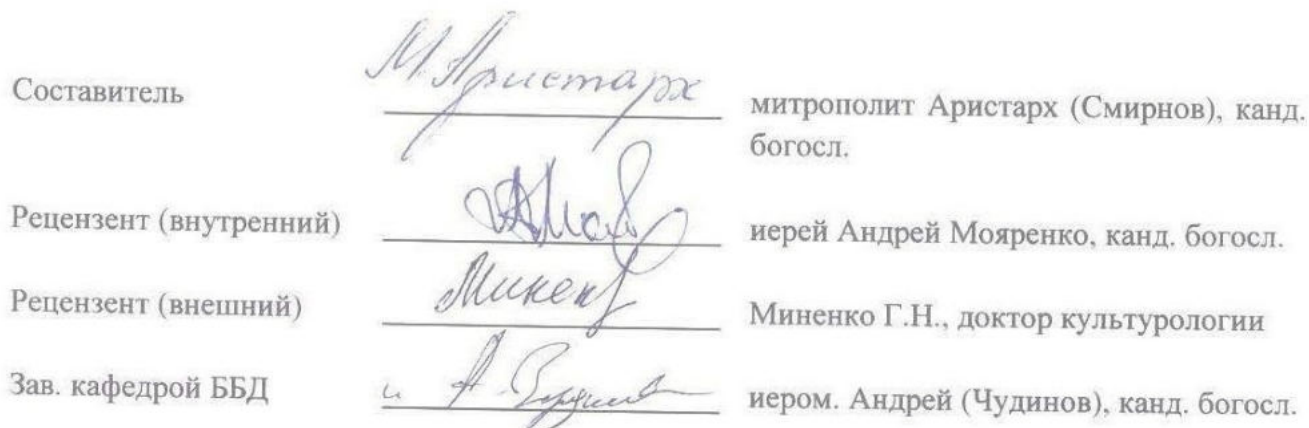 Составитель М. Аристарх митрополит Аристарх (Смирнов), канд.
богосл.
Рецензент (внутренний) иерей Андрей Мояренко, канд. богосл.
Рецензент (внешний) Миненко Г.Н., доктор культурологии
Зав. кафедрой ББД иером. Андрей (Чудинов), канд. богосл.